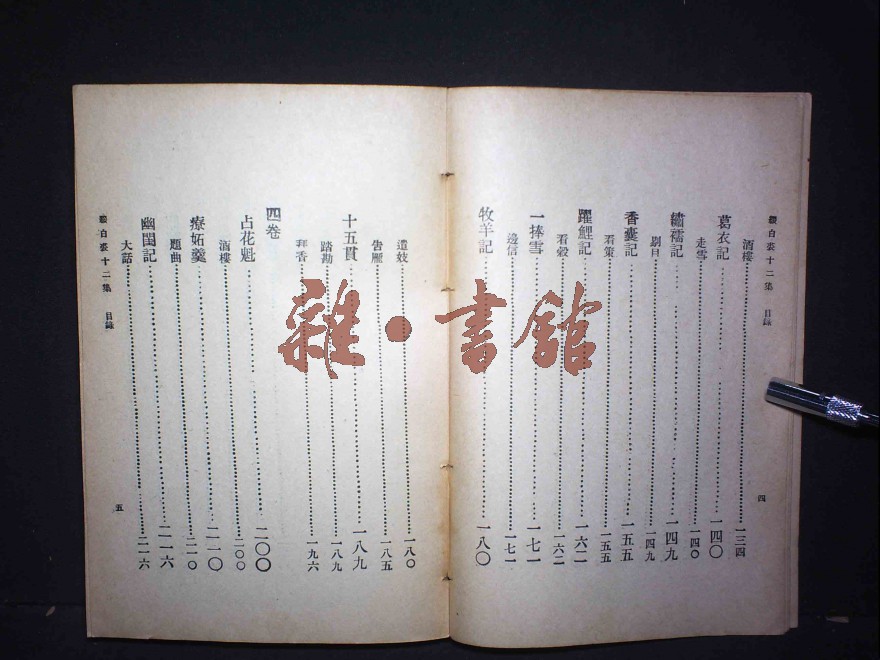 綴白裘十二集 目錄
酒樓 一三四
葛衣記 一四〇
走雪 一四〇
繡襦記 一四九
剔目 一四九
香囊記 一五五
看策 一五五
躍鯉記 一六二
看穀 一六二
一捧雪 一七一
邊信 一七一
牧羊記 一八〇
四
遣妓 一八〇
告雁 一八五
十五貫 一八九
踏勘 一八九
拜香 一九六
四卷
占花魁 二〇〇
酒樓 二〇〇
療妬羹 二一〇
題曲 二一〇
幽閨記 二一六
大話 二一六
綴白裘十二集 目錄
五
雜·書館